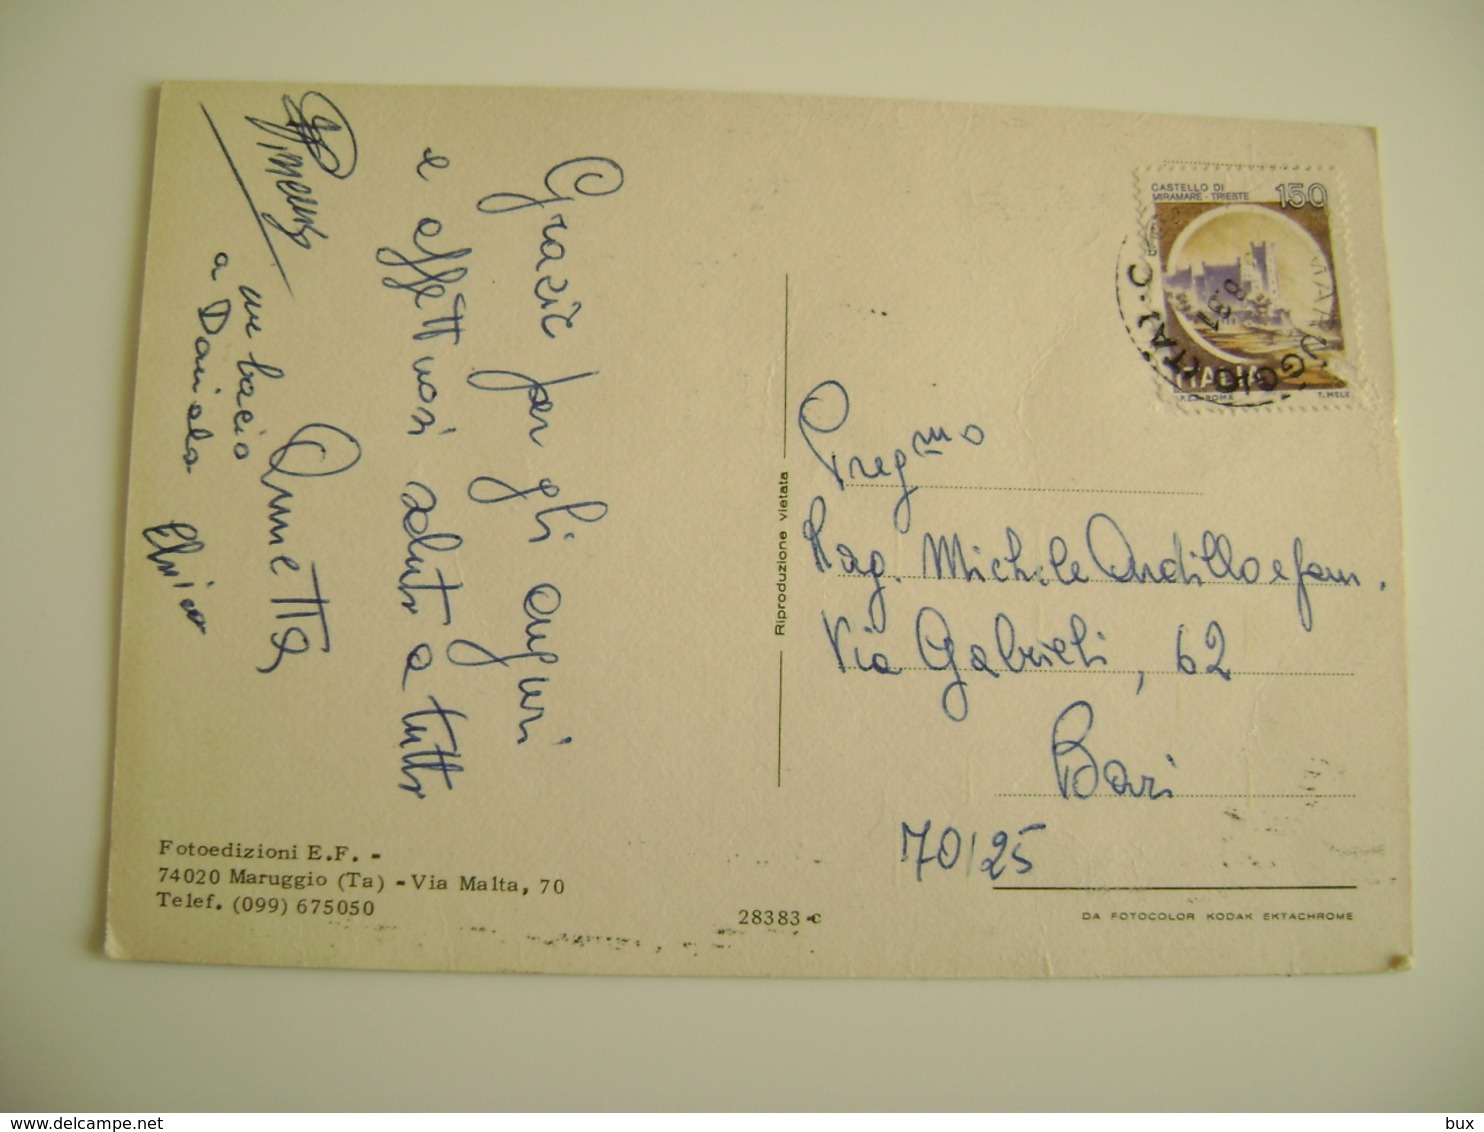 Grazie per gli auguri
e affettuosi saluti a tutti
Annetta
un bacio
a Daniela
CASTELLO DI
MIRAMARE - TRIESTE
150
ITALIA
I.P.Z.S. ROMA
T. MELE
MARUGGIO (TA)
Riproduzione vietata
Preg mo
Rag. Michele Ardillo e fam.
Via Gabrieli, 62
Bari
70125
Fotoedizioni E.F. -
74020 Maruggio (Ta) - Via Malta, 70
Telef. (099) 675050
28383-c
DA FOTOCOLOR KODAK EKTACHROME
delcampe.net
bux